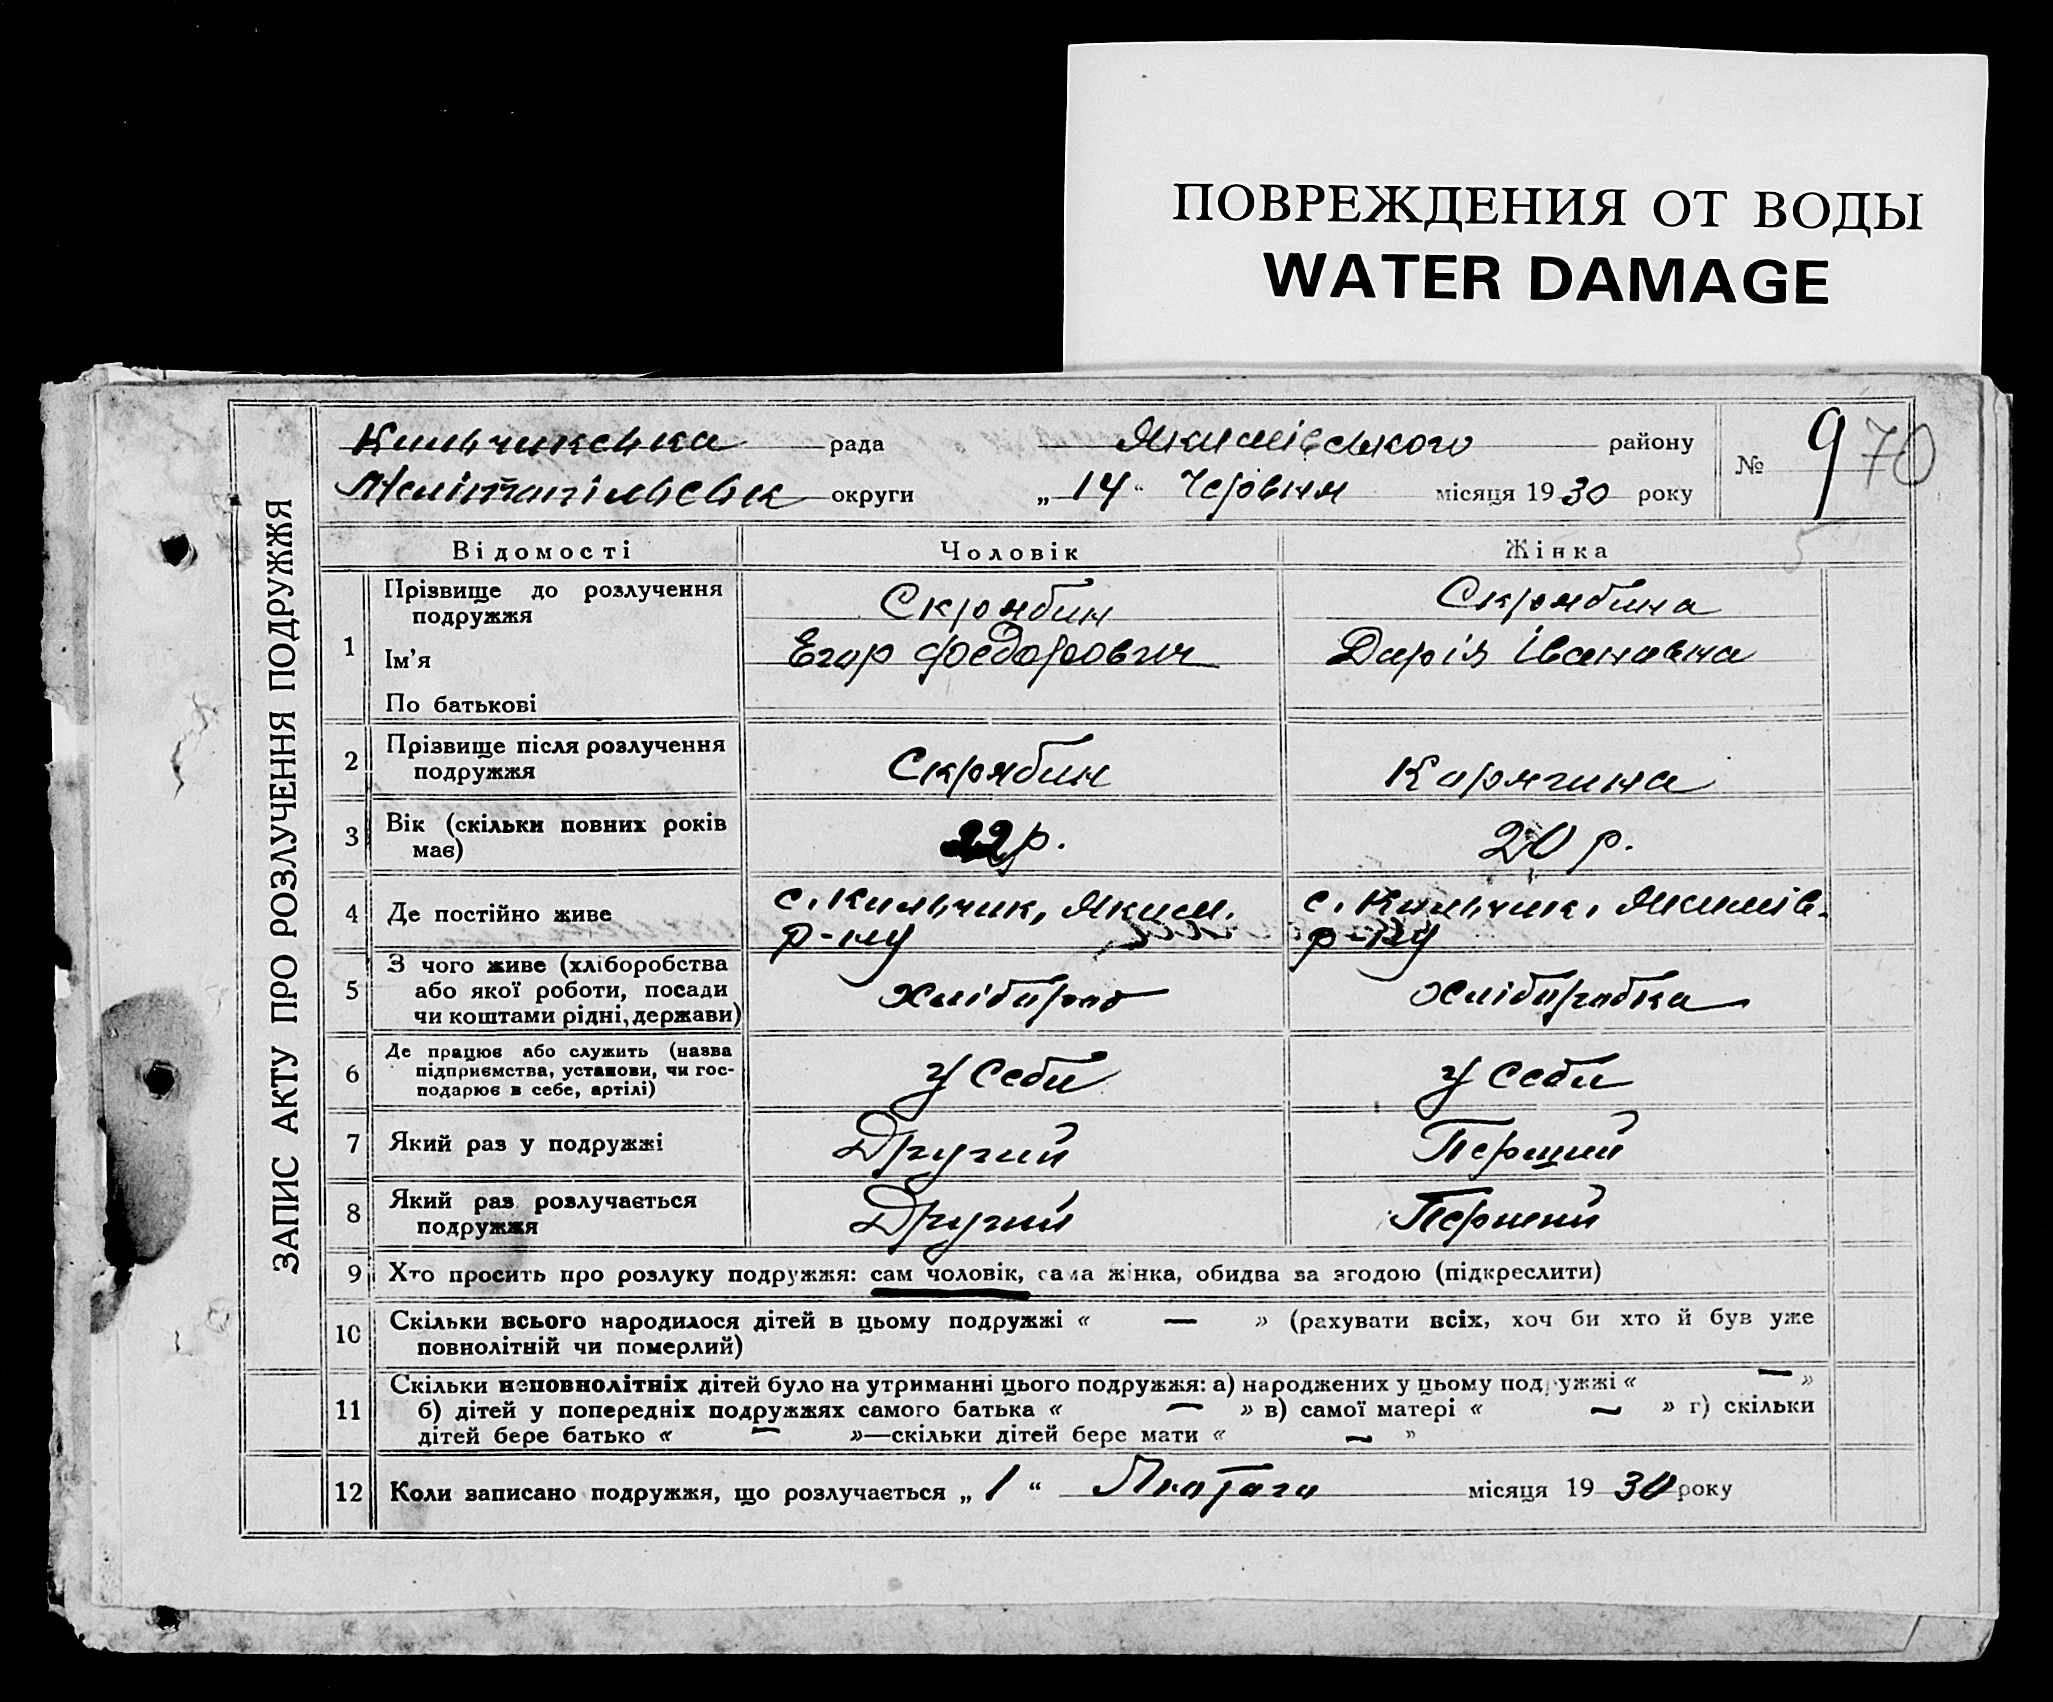 ПОВРЕЖДЕНИЯ ОТ ВОДЫ
WATER DAMAGE
Кильчикська рада Якимівського району
Мелітопільськ округи „ 14 “ Червня місяця 1930 року
№ 9 70
5
ЗАПИС АКТУ ПРО РОЗЛУЧЕННЯ ПОДРУЖЖЯ
Відомості Чоловік Жінка
1 Прізвище до розлучення Скрябин Скрябина
подружжя
Ім'я Егор Федорович Дарія Івановна
По батькові
2 Прізвище після розлучення
подружжя Скрябин Карягина
3 Вік (скільки повних років 22 р. 20 р.
має)
4 Де постійно живе с. Кильчик, Яким. с. Кильчик, Якимів.
р-ну р-ну
5 З чого живе (хліборобства
або якої роботи, посади Хлібороб Хліборобка
чи коштами рідні, держави)
6 Де працює або служить (назва
підприємства, установи, чи гос- у себи у себи
подарює в себе, артілі)
7 Який раз у подружжі Другий Перший
8 Який раз розлучається Другий Перший
подружжя
9 Хто просить про розлуку подружжя: сам чоловік, сама жінка, обидва за згодою (підкреслити)
10 Скільки всього народилося дітей в цьому подружжі « — » (рахувати всіх, хоч би хто й був уже
повнолітній чи померлий)
11 Скільки неповнолітніх дітей було на утриманні цього подружжя: а) народжених у цьому подружжі « — »
б) дітей у попередніх подружжях самого батька « — » в) самої матері « — » г) скільки
дітей бере батько « — »—скільки дітей бере мати « — »
12 Коли записано подружжя, що розлучається „ 1 “ Лютого місяця 1930 року